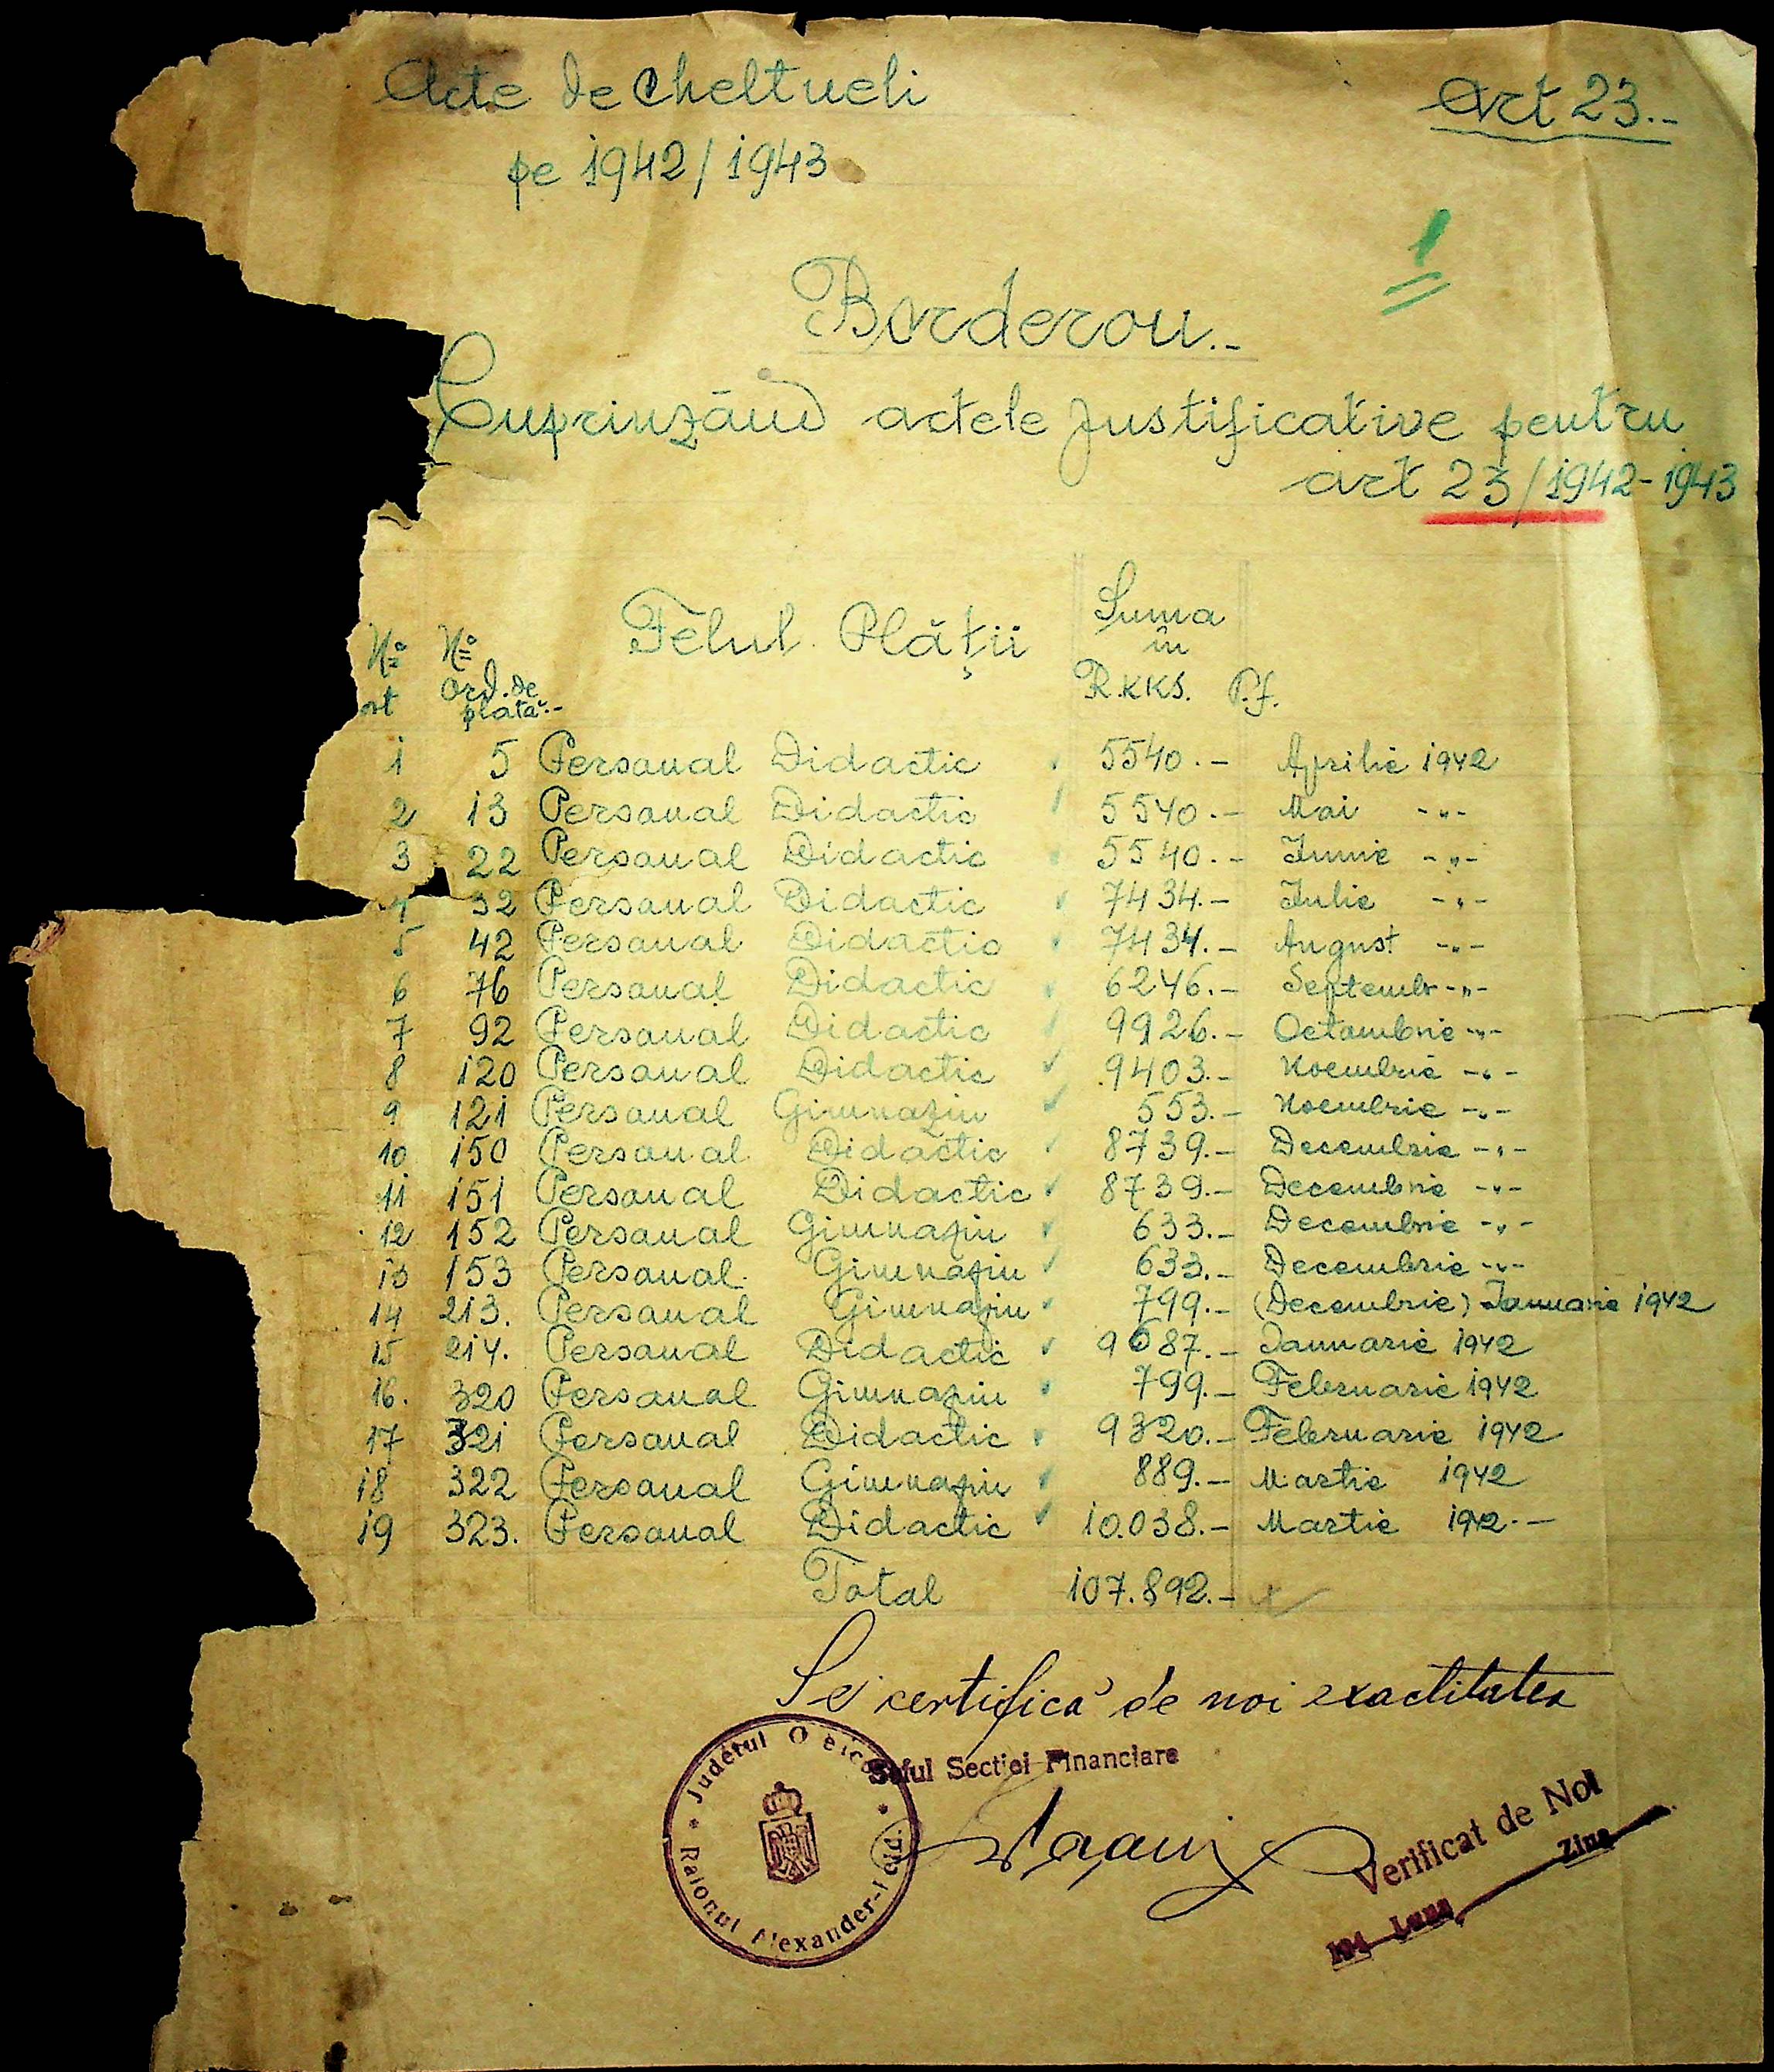 Acte de Cheltueli
Art 23.-
pe 1942/1943
1
Borderou.-
Cuprinzând actele justificative pentru
art 23/1942-1943
No ort No Ord. de plată.- Felul Plății Suma în R.KKS. P.f.
1 5 Personal Didactic 5540.- Aprilie 1942
2 13 Personal Didactic 5540.- Mai -"-
3 22 Personal Didactic 5540.- Iunie -"-
4 32 Personal Didactic 7434.- Iulie -"-
5 42 Personal Didactic 7434.- August -"-
6 76 Personal Didactic 6246.- Septembr -"-
7 92 Personal Didactic 9926.- Octombrie -"-
8 120 Personal Didactic 9403.- Noembrie -"-
9 121 Personal Gimnaziu 553.- Noembrie -"-
10 150 Personal Didactic 8739.- Decembrie -"-
11 151 Personal Didactic 8739.- Decembrie -"-
12 152 Personal Gimnaziu 633.- Decembrie -"-
13 153 Personal Gimnaziu 633.- Decembrie -"-
14 213. Personal Gimnaziu 799.- (Decembrie) Ianuarie 1942
15 214. Personal Didactic 9687.- Ianuarie 1942
16. 320 Personal Gimnaziu 799.- Februarie 1942
17 321 Personal Didactic 9320.- Februarie 1942
18 322 Personal Gimnaziu 889.- Martie 1942
19 323. Personal Didactic 10.038.- Martie 1942.-
Total 107.892.-
Se certifică de noi exactitatea
Șeful Sectiei Financiare
Judetul O * Raionul Alexander-
Verificat de Noi
194 Luna Ziua